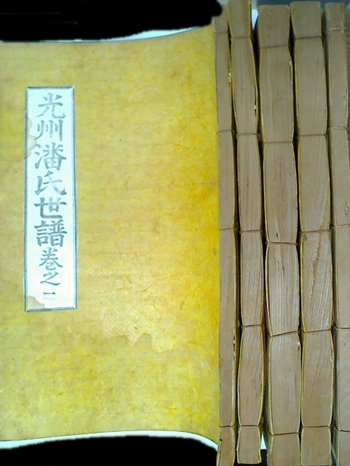 光州潘氏世譜卷之一